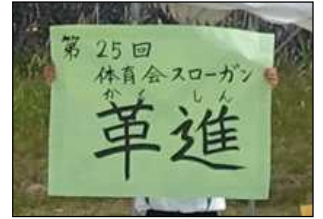 第25回
体育会スローガン
かくしん
革進